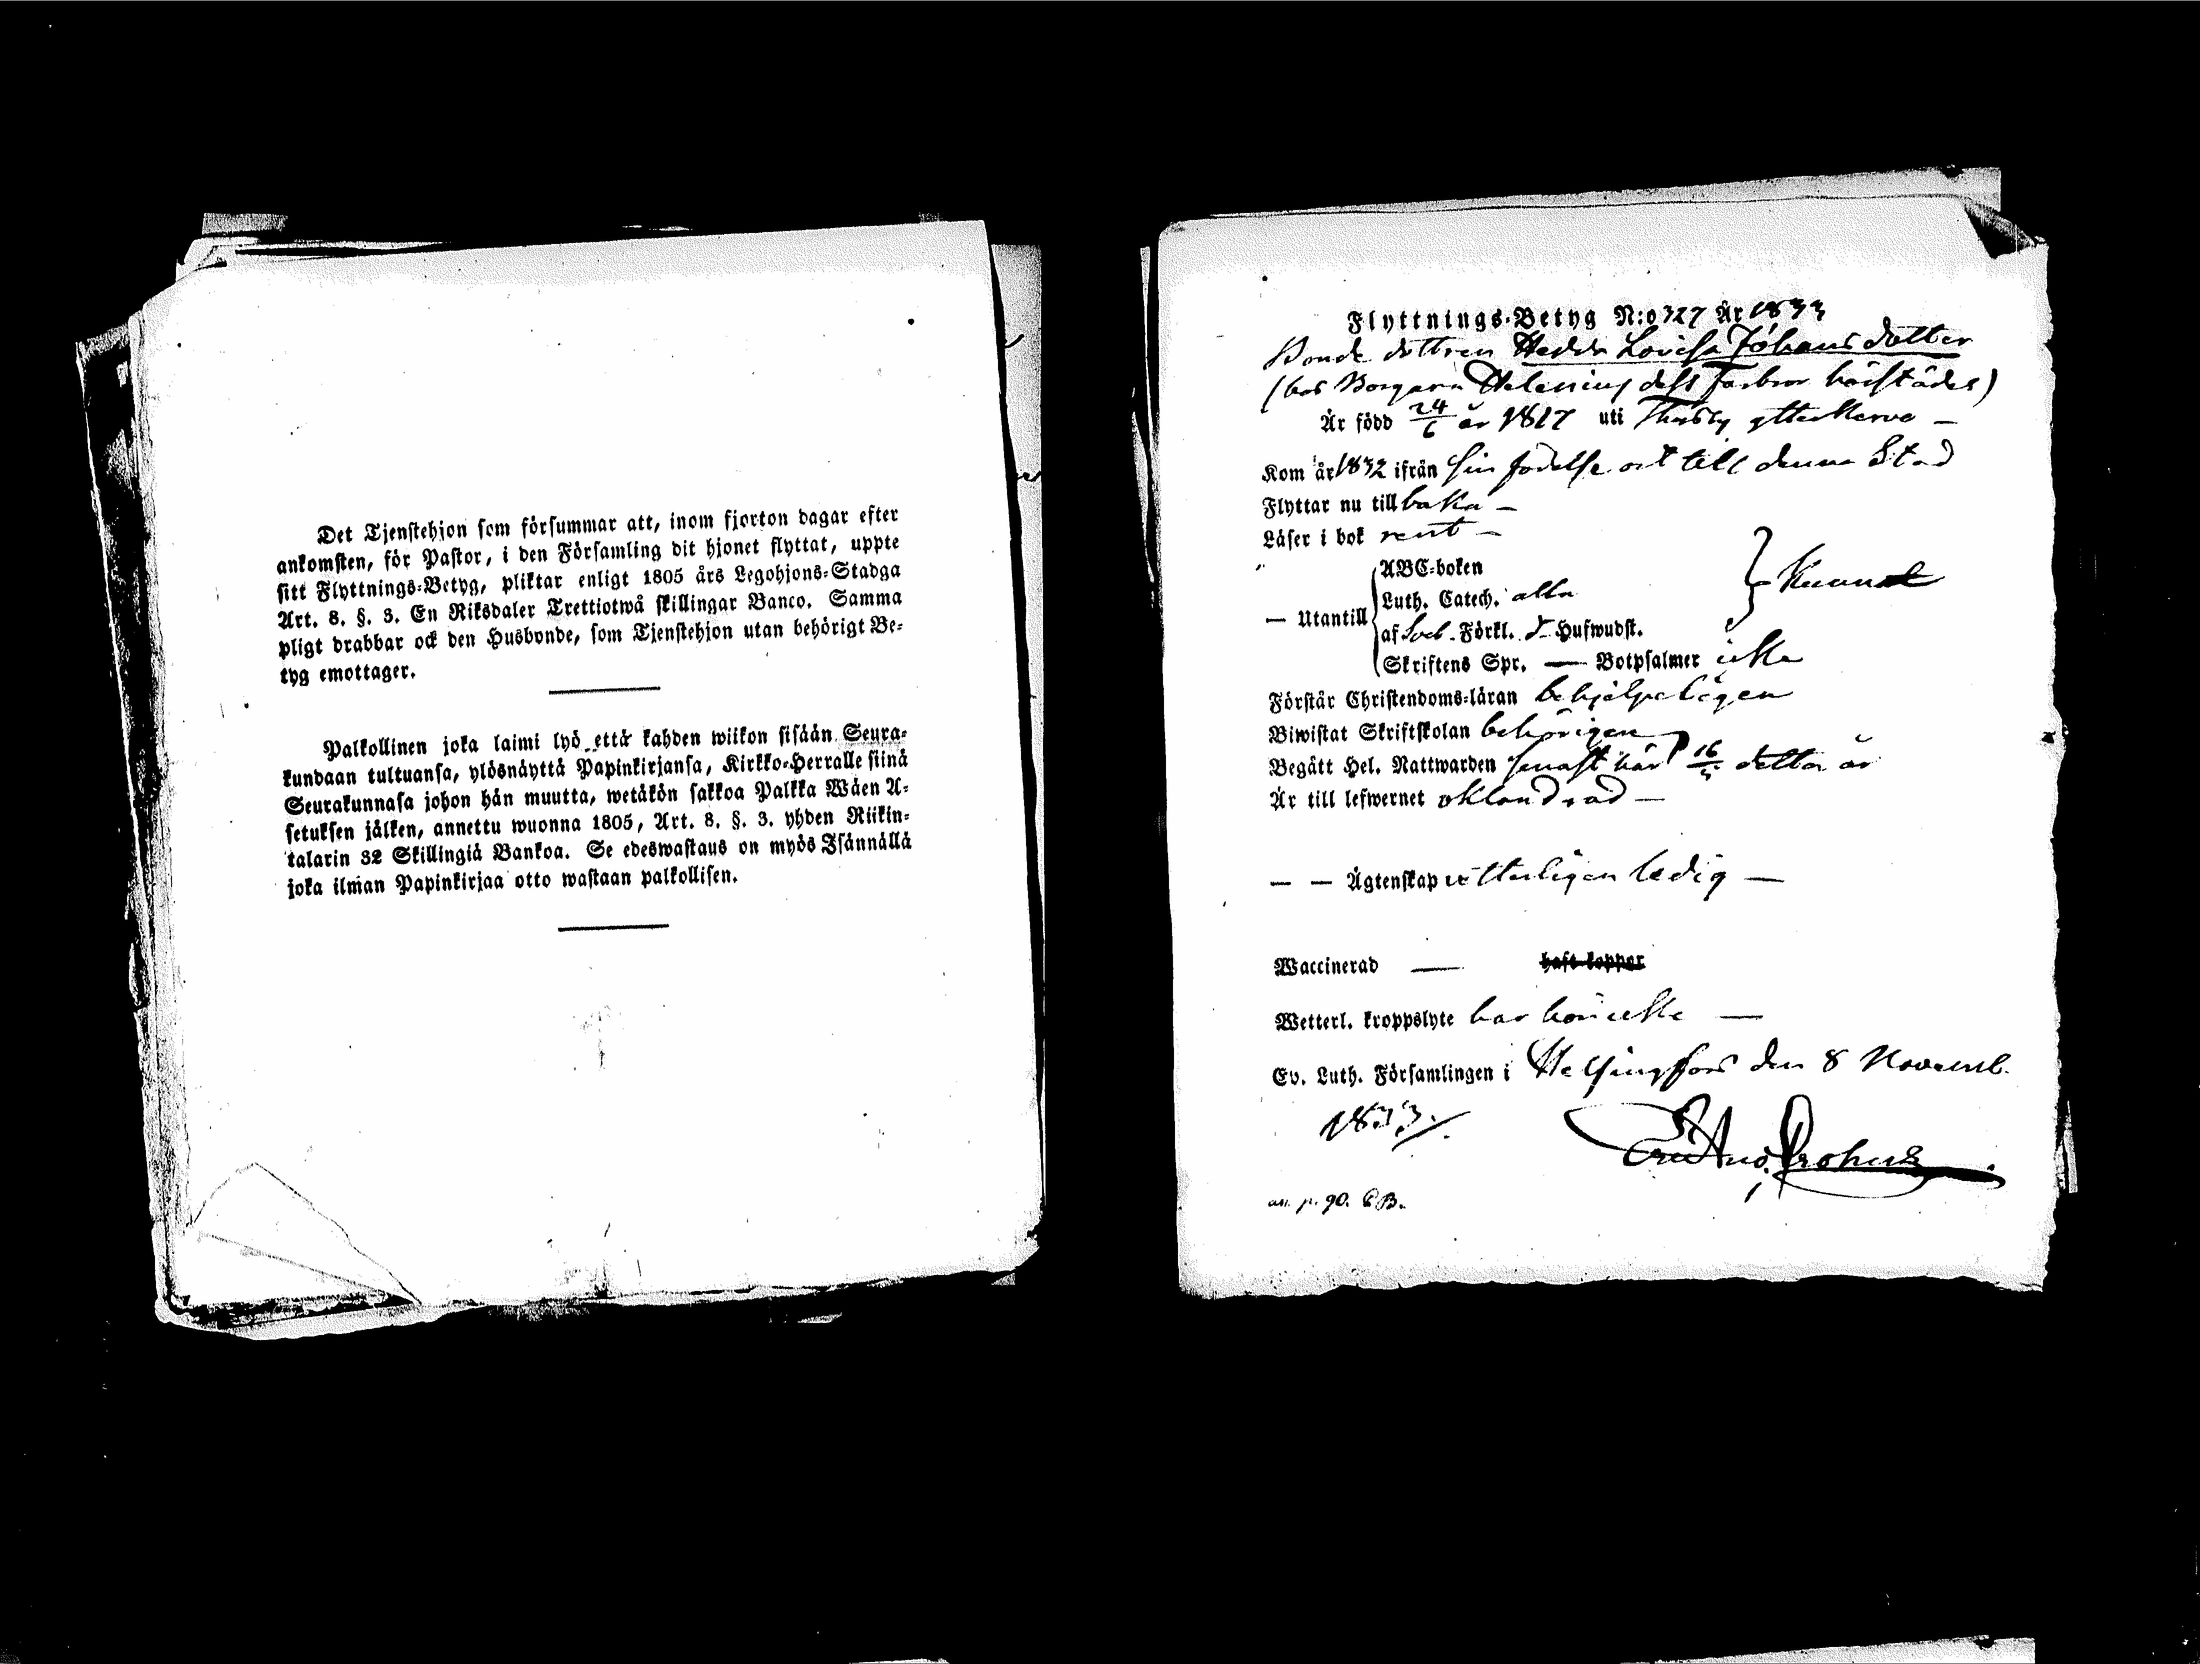 Det Tjenstehjon som försummar att, inom fjorton dagar efter
ankomsten, för Pastor, i den Församling dit hjonet flyttat, uppte
sitt Flyttnings-Betyg, pliktar enligt 1805 års Legohjons-Stadga
Art. 8. §. 3. En Riksdaler Trettiotwå skillingar Banco. Samma
pligt drabbar ock den Husbonde, som Tjenstehjon utan behörigt Be-
tyg emottager.
Palkollinen joka laimi lyö että kahden wiikon sisään Seura-
kundaan tultuansa, ylösnäyttä Papinkirjansa, Kirkko-Herralle siinä
Seurakunnasa johon hän muutta, wetäkön sakkoa Palkka Wäen A-
setuksen jälken, annettu wuonna 1805, Art. 8. §. 3. yhden Riikin-
talarin 32 Skillingiä Bankoa. Se edeswastaus on myös Isännällä
joka ilman Papinkirjaa otto wastaan palkollisen.
Flyttnings-Betyg N:o 327 År 1833
Bonde dottren Hedda Lovisa Johansdotter
(hos Borgaren Helenius dess Farbror härstädes)
Är född 24/6 år 1817 uti Thusby ytterkerva —
Kom år 1832 ifrån sin födelse ort till denna Stad
Flyttar nu till baka —
Läser i bok rent —
ABC-boken
Luth. Catech. alla
— Utantill } Kunnat
af Förkl. Hufwudst.
Skriftens Spr. — Botpsalmer icke
Förstår Christendoms-läran behjelpeligen
Biwistat Skriftskolan behörigen
Begått Hel. Nattwarden senast här 16/ detta år
Är till lefwernet oklandrad —
— — Ägtenskap vetterligen ledig —
Waccinerad — haft koppor
Wetterl. kroppslyte har hon icke —
Ev. Luth. Församlingen i Helsingfors den 8 Novemb.
1833.
an. p. 90.